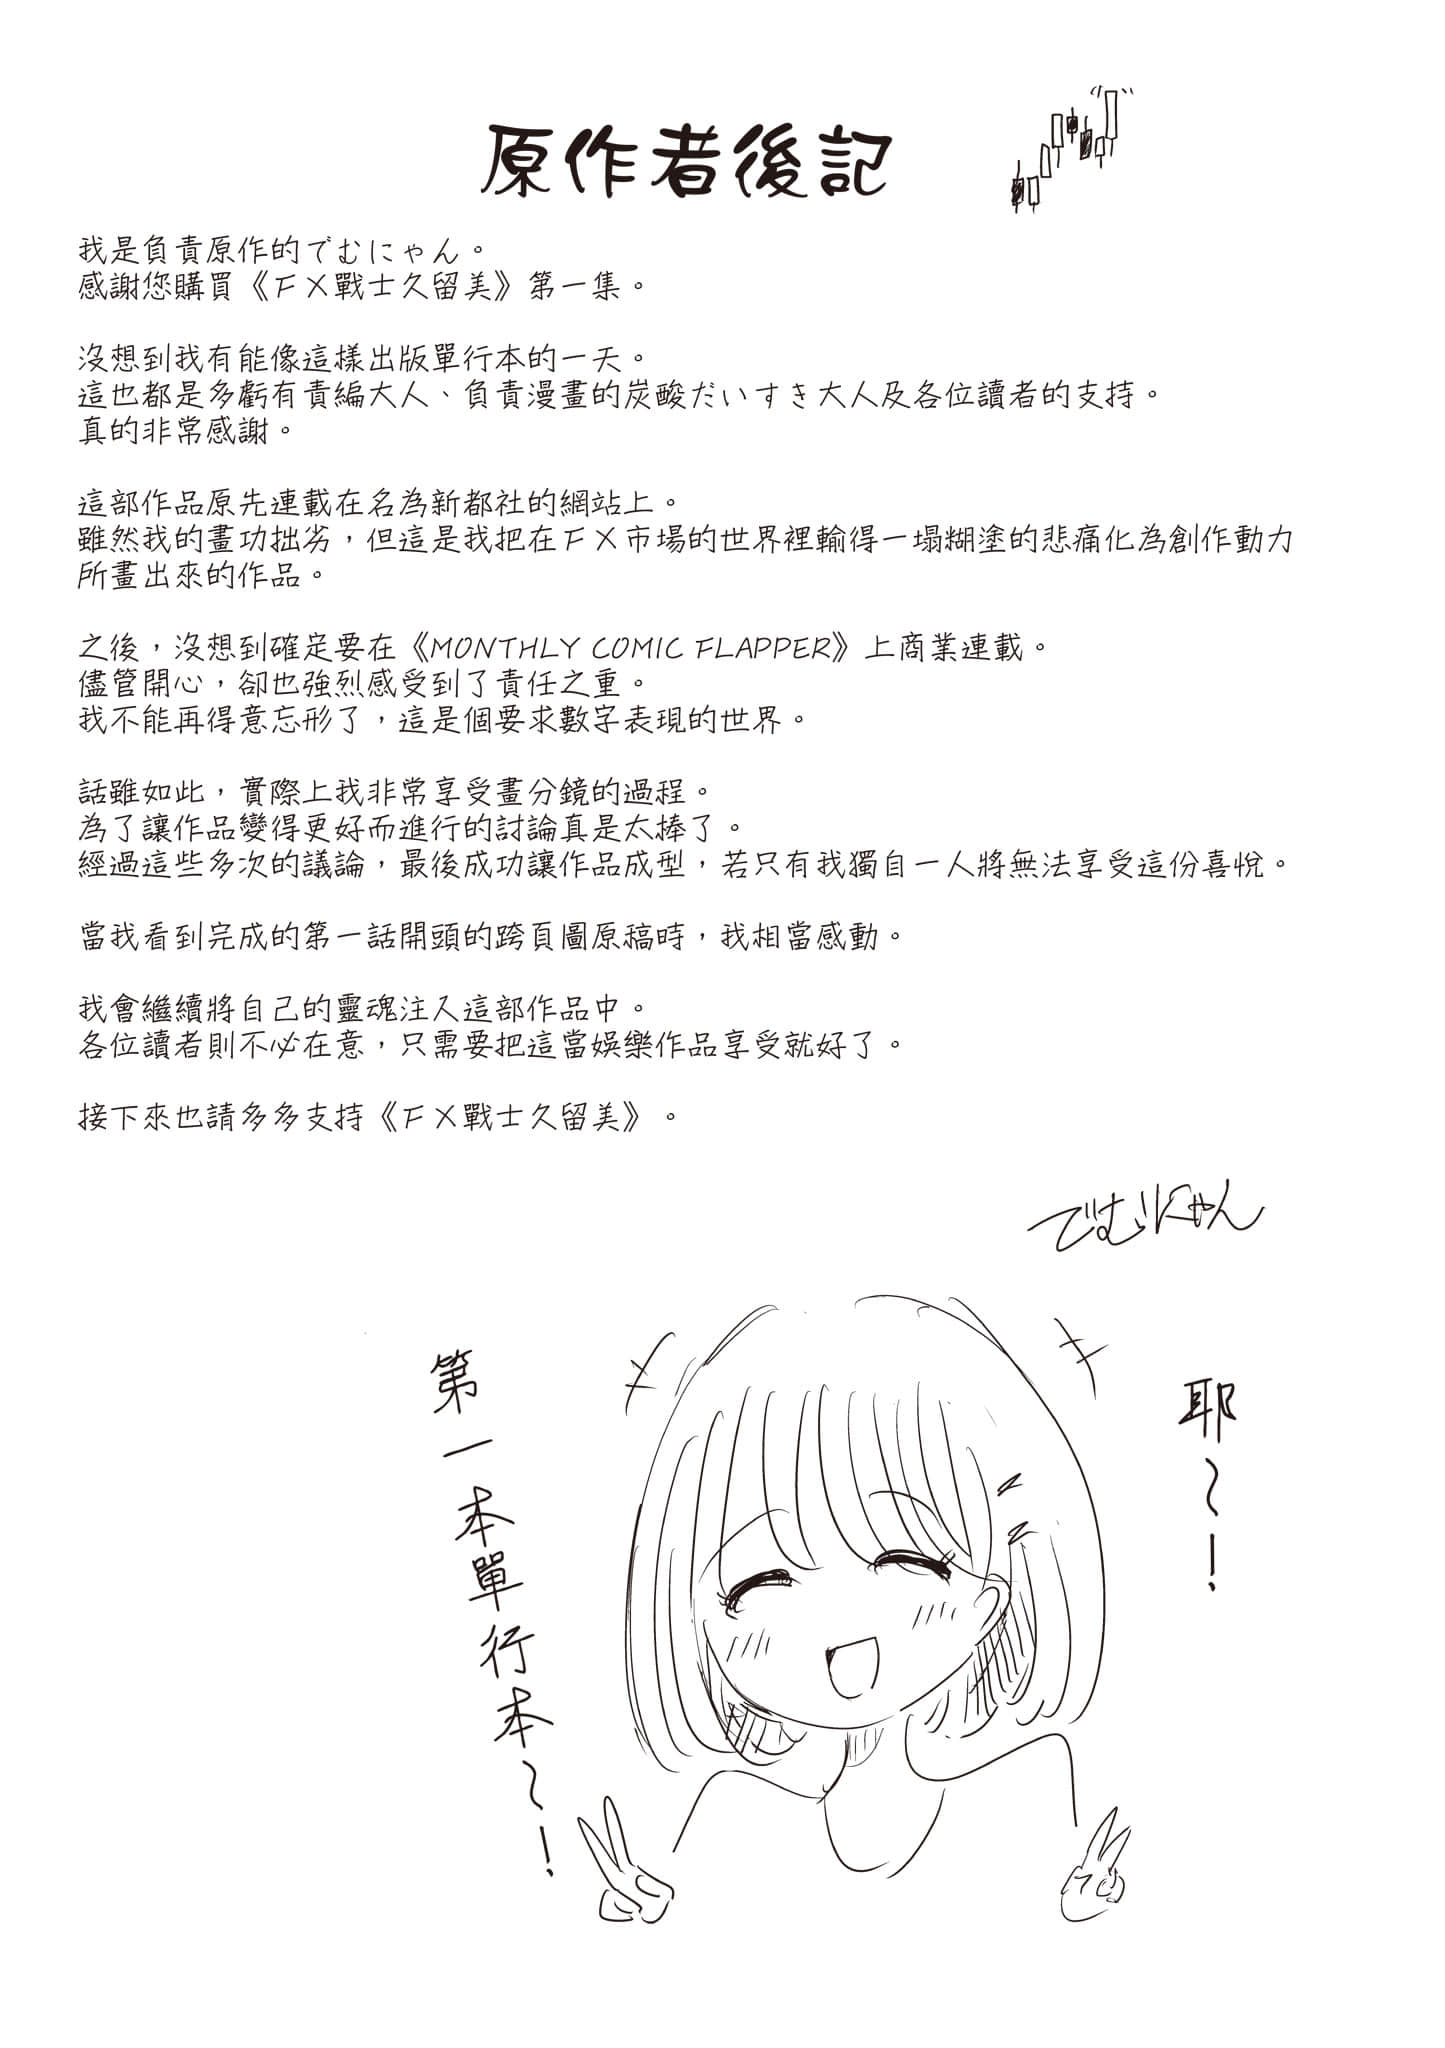 原作者後記
我是負責原作的でむにゃん。
感謝您購買《ＦＸ戰士久留美》第一集。
沒想到我有能像這樣出版單行本的一天。
這也都是多虧有責編大人、負責漫畫的炭酸だいすき大人及各位讀者的支持。
真的非常感謝。
這部作品原先連載在名為新都社的網站上。
雖然我的畫功拙劣，但這是我把在ＦＸ市場的世界裡輸得一塌糊塗的悲痛化為創作動力
所畫出來的作品。
之後，沒想到確定要在《MONTHLY COMIC FLAPPER》上商業連載。
儘管開心，卻也強烈感受到了責任之重。
我不能再得意忘形了，這是個要求數字表現的世界。
話雖如此，實際上我非常享受畫分鏡的過程。
為了讓作品變得更好而進行的討論真是太棒了。
經過這些多次的議論，最後成功讓作品成型，若只有我獨自一人將無法享受這份喜悅。
當我看到完成的第一話開頭的跨頁圖原稿時，我相當感動。
我會繼續將自己的靈魂注入這部作品中。
各位讀者則不必在意，只需要把這當娛樂作品享受就好了。
接下來也請多多支持《ＦＸ戰士久留美》。
でむにゃん
耶～！
第一本單行本～！